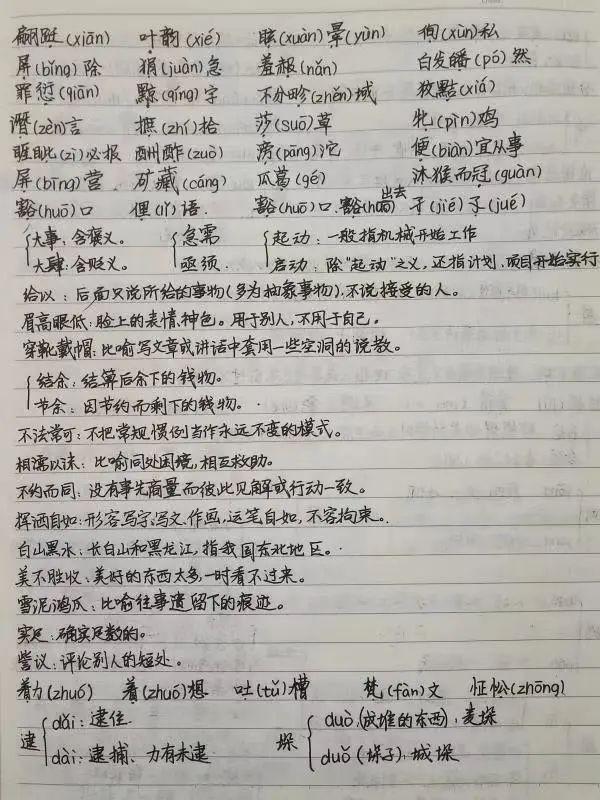 翩跹(xiān) 叶韵(xié) 眩(xuàn)晕(yùn) 徇(xùn)私
屏(bǐng)除 狷(juàn)急 羞赧(nǎn) 白发皤(pó)然
罪愆(qiān) 黥(qíng)字 不分畛(zhěn)域 狡黠(xiá)
谮(zèn)言 摭(zhí)拾 莎(suō)草 牝(pìn)鸡
睚眦(zì)必报 酬酢(zuò) 滂(pāng)沱 便(biàn)宜从事
屏(bǐng)营 矿藏(cáng) 瓜葛(gé) 沐猴而冠(guàn)
豁(huō)口 俚(lǐ)语. 豁(huō)口.豁(huō)出去 孑(jié)孓(jué)
大事:含褒义。 急需 起动:一般指机械开始工作
大肆:含贬义。 亟须. 启动:除"起动"之义,还指计划、项目开始实行
给以:后面只说所给的事物(多为抽象事物),不说接受的人。
眉高眼低:脸上的表情、神色。用于别人,不用于自己。
穿靴戴帽:比喻写文章或讲话中套用一些空洞的说教。
结余:结算后余下的钱物。
节余:因节约而剩下的钱物。
不法常可:不把常规惯例当作永远不变的模式。
相濡以沫:比喻同处困境,相互救助。
不约而同:没有事先商量而彼此见解或行动一致。
挥洒自如:形容写字、写文、作画,运笔自如,不容拘束。
白山黑水:长白山和黑龙江,指我国东北地区。
美不胜收:美好的东西太多,一时看不过来。
雪泥鸿爪:比喻往事遗留下的痕迹。
实足:确实足数的。
訾议:评论别人的短处。
着力(zhuó) 着(zhuó)想 吐(tǔ)槽 梵(fàn)文 怔忪(zhōng)
逮 dǎi:逮住. 垛 duò.(成堆的东西),麦垛
dài:逮捕、力有未逮 duǒ(垛子).城垛